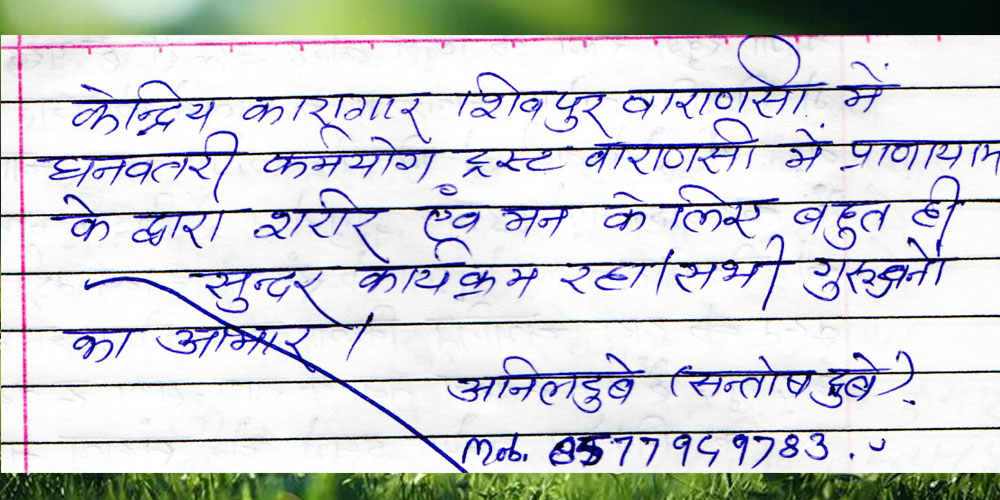 केन्द्रिय कारागार शिवपुर वाराणसी में
धनवतरी कर्मयोग ट्रस्ट वाराणसी में प्राणायाम
के द्वारा शरीर एवँ मन के लिए बहुत ही
सुन्दर कार्यक्रम रहा। सभी गुरुजनों
का आभार।
अनिल दुबे (सन्तोष दुबे)
Mob.